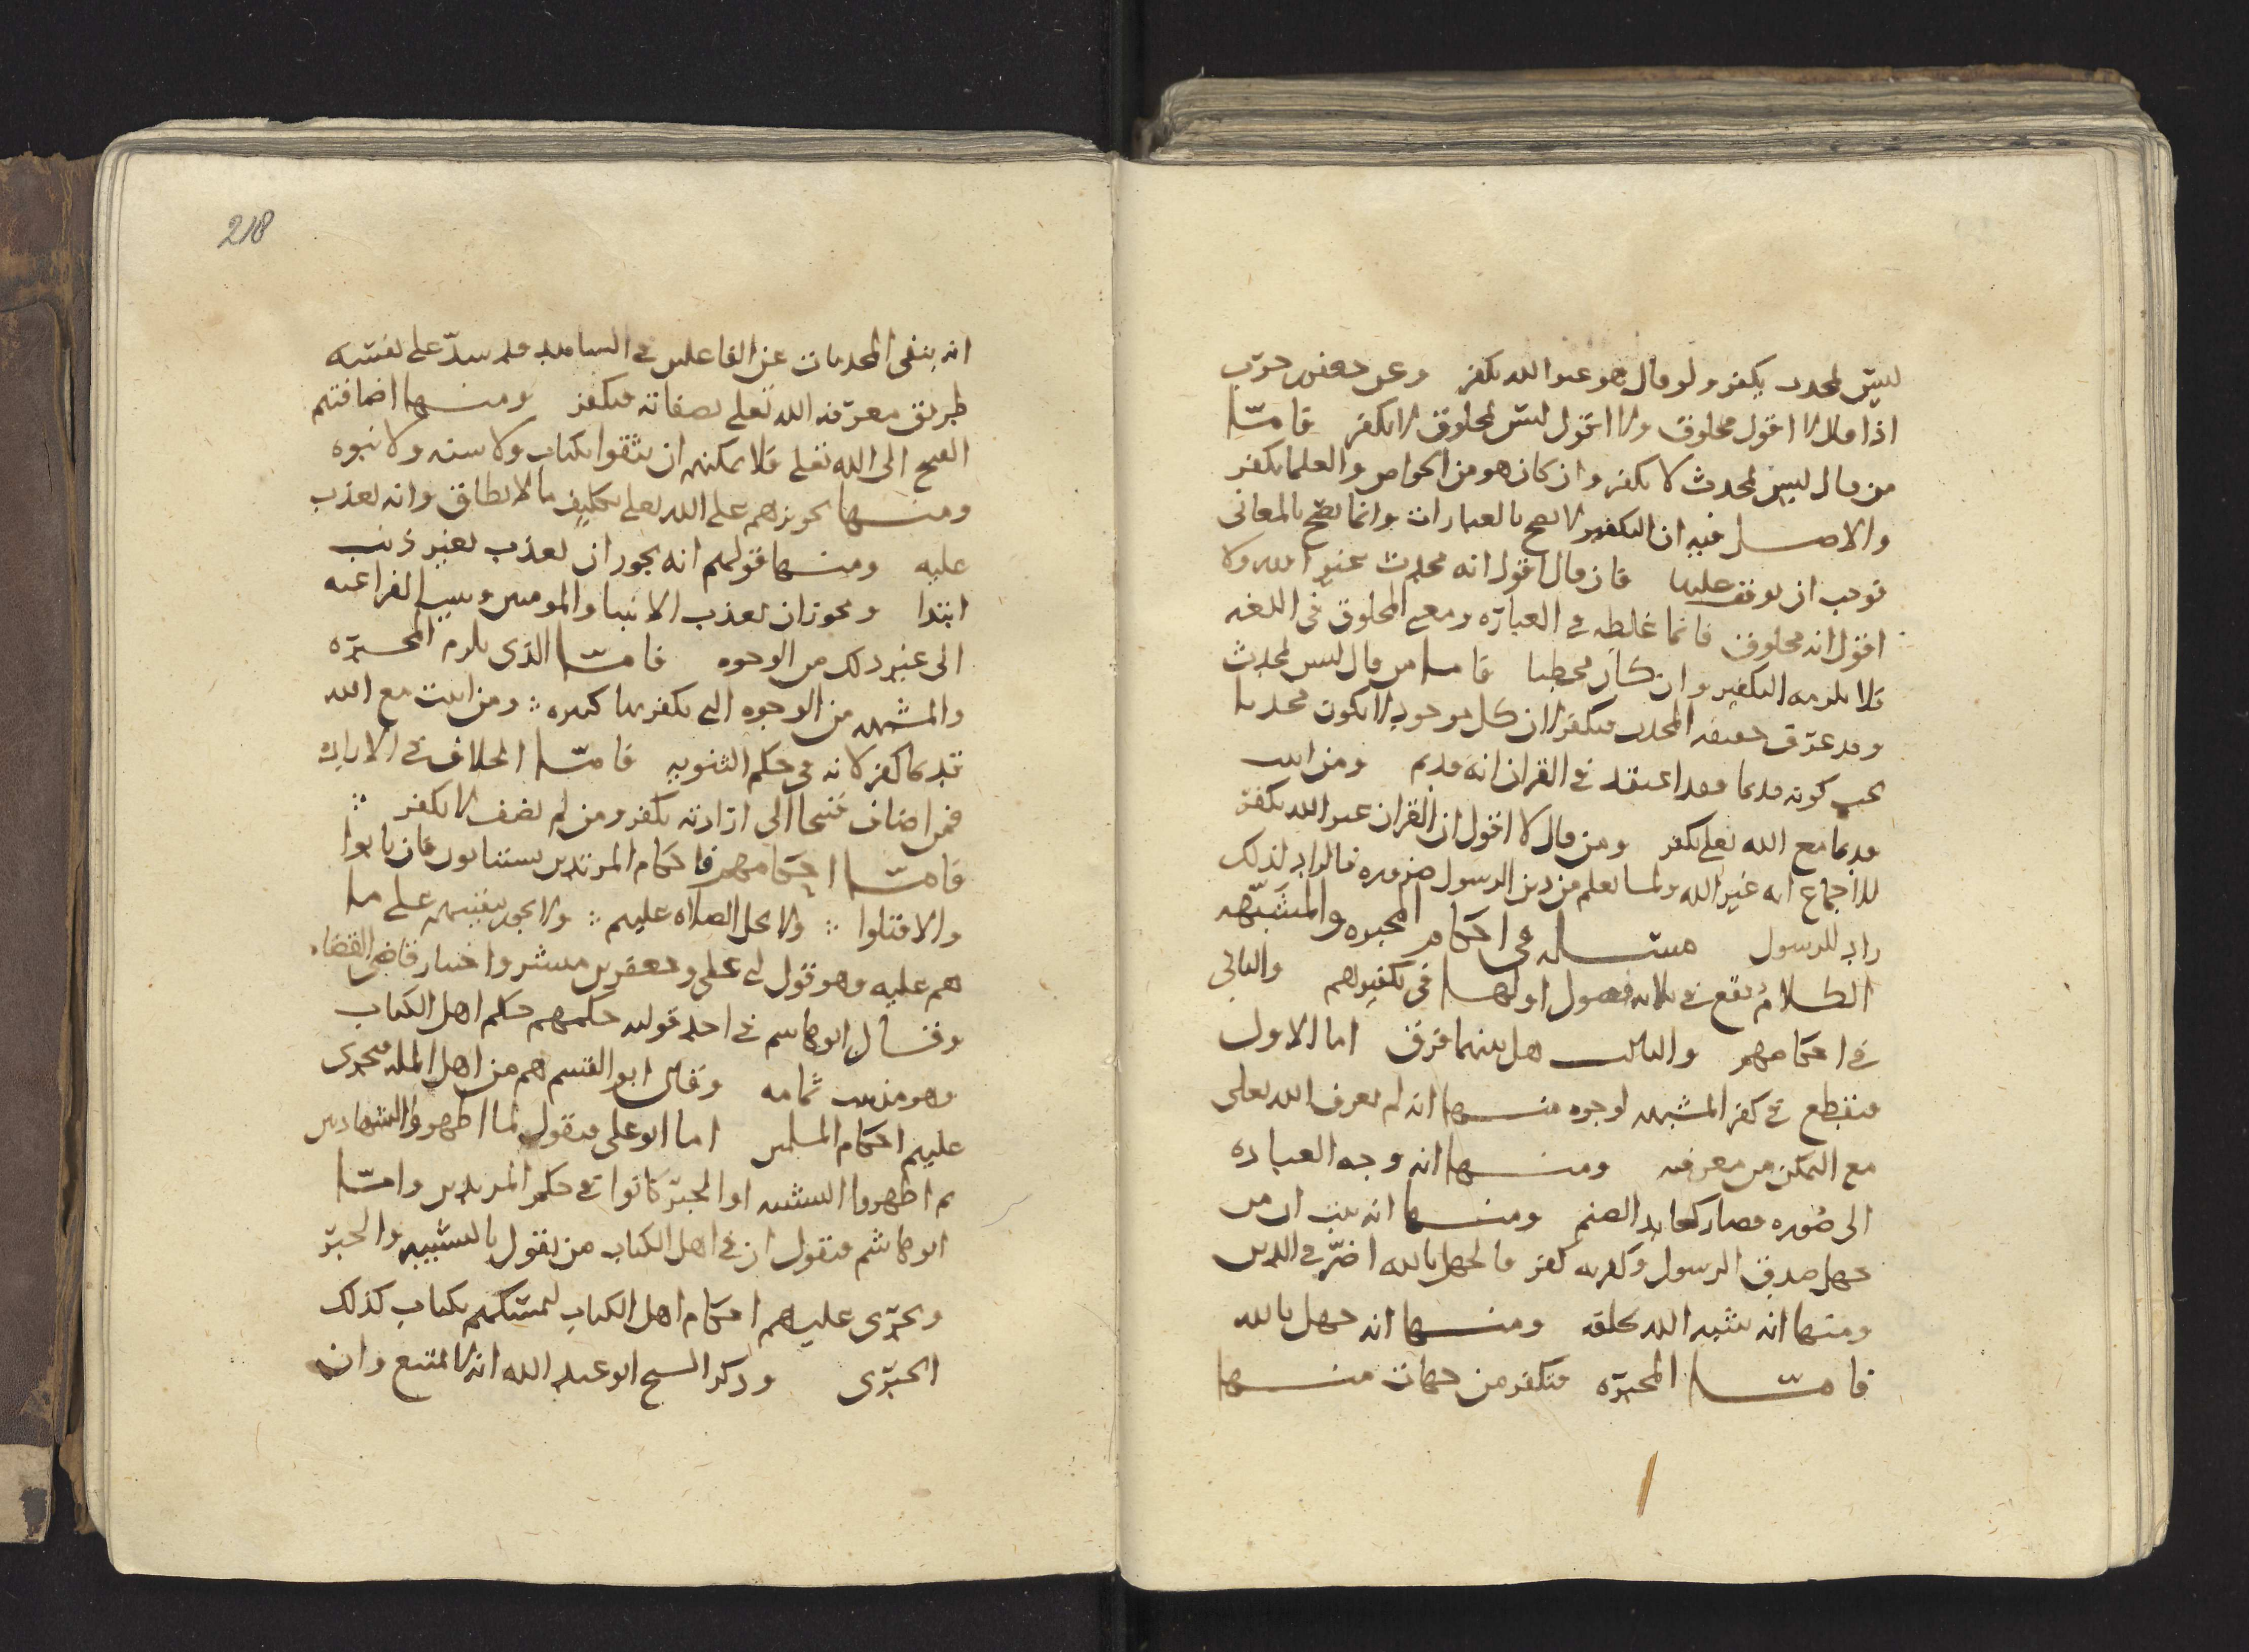 ليس بمحدث يكفر ولو قال هو عبد الله يكفر وعن جعفر بن حرب
اذا قال لا اقول مخلوق ولا اقول ليس بمخلوق لا يكفر فامّا
من قال ليس بمحدث لا يكفر وان كان هو من الخواص والعلما يكفر
والاصل فيه ان التكفير لا يصح بالعبارات وانما يصح بالمعاني
فوجب ان يوقف عليها فان قال اقول انه محدث غير الله ولا
اقول انه مخلوق فانما غلطه في العبارة ومعنى المخلوق في اللغه
فلا يلزمه التكفير وان كان مخطيا فاما من قال ليس بمحدث
وقد عرف حقيقه المحدث فيكفر لان كل موجود لا يكون محدثا
يجب كونه قديما فقد اعتقد في القران انه قديم ومن اثبت
قديما مع الله تعلى يكفر ومن قال لا اقول ان القران غير الله يكفر
للاجماع انه غير الله ولما يعلم من دين الرسول ضروره فالراد لذلك
راد للرسول مسله في احكام المجبره والمشبّهه
الكلام يقع في ثلاثه فصول اولها في تكفيرهم والثاني
في احكامهم والثالث هل بينهما فرق اما الاول
فنقطع في كفر المشبهه لوجوه منها انه لم يعرف الله تعلى
مع التمكن من معرفته ومنها انه وجه العباده
الى صوره فصار كعابد الصنم ومنها انه ثبت ان من
جهل صدق الرسول وكفر به كفر فالجهل بالله اضرّ في الدين
ومنها انه شبه الله بخلقه ومنها انه جهل بالله
فامّا المجبّره فتكفر من جهات منها
218
انه ينفي المحدثات عن الفاعلين في الشاهد فقد سدّ على نفسه
طريق معرفه الله تعلى بصفاته فيكفر ومنها اضافتهم
القبيح الى الله تعلى فلا يمكنهم ان يثقوا بكتاب ولا سنه ولا نبوه
ومنها تجويزهم على الله تعلى تكليف ما لا يطاق وانه يعذب
عليه ومنها قولهم انه يجوز ان يعذب بغير ذنب
ابتدا ويجوز ان يعذب الانبيا والمومنين ويثيب الفراعنه
الى غير ذلك من الوجوه فامّا الذي يلزم المجبّره
والمشبهه من الوجوه التي يكفر بها كثيره ومن اثبت مع الله
قديما كفر لانه في حكم الثنويه فامّا الخلاف في الاراده
فمن اضاف قبيحا الى ارادته يكفر ومن لم يضف لا يكفر
فامّا احكامهم فاحكام المرتدين يستتابون فان تابوا
والا قتلوا ولا يحل الصلاه عليهم ولا يجوز تبقيتهم على ما
هم عليه وهو قول ابي علي وجعفر بن مبشر واختيار قاضي القضاه
وقال ابو هاشم في احد قوليه حكمهم حكم اهل الكتاب
وهو مذهب ثمامه وقال ابو القسم هم من اهل المله فيجرى
عليهم احكام المسلمين اما ابو علي فيقول لما اظهروا الشهادتين
ثم اظهروا التشبيه او الجبر كانوا في حكم المرتدين وامّا
ابو هاشم فيقول ان في اهل الكتاب من يقول بالتشبيه والجبر
ويجرى عليهم احكام اهل الكتاب لتمسكهم بكتاب كذلك
الجبرى وذكر الشيخ ابو عبد الله انه لا يمتنع وان